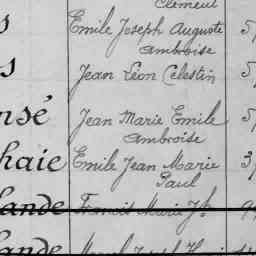 Clément
Emile Joseph Auguste
Ambroise
Jean Léon Célestin
nsé Jean Marie Emile
Ambroise
haie Emile Jean Marie
Paul
lande Francis Marie Jh
lande